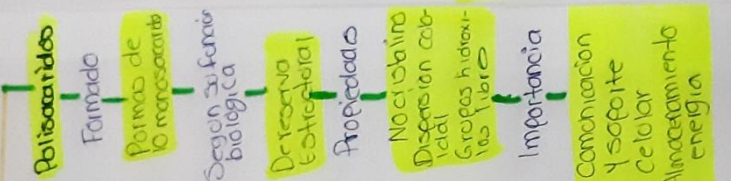 Polisacaridos
Formado
Pormas de
10 monosacarido
Según su función
biológica
De reserva
Estructural
Propiedade
No cristalino
Dispersion colo-
idal
Grupos hidroxi-
los libro
Importancia
Comunicacion
y soporte
celolar
Almacenamiento
energia